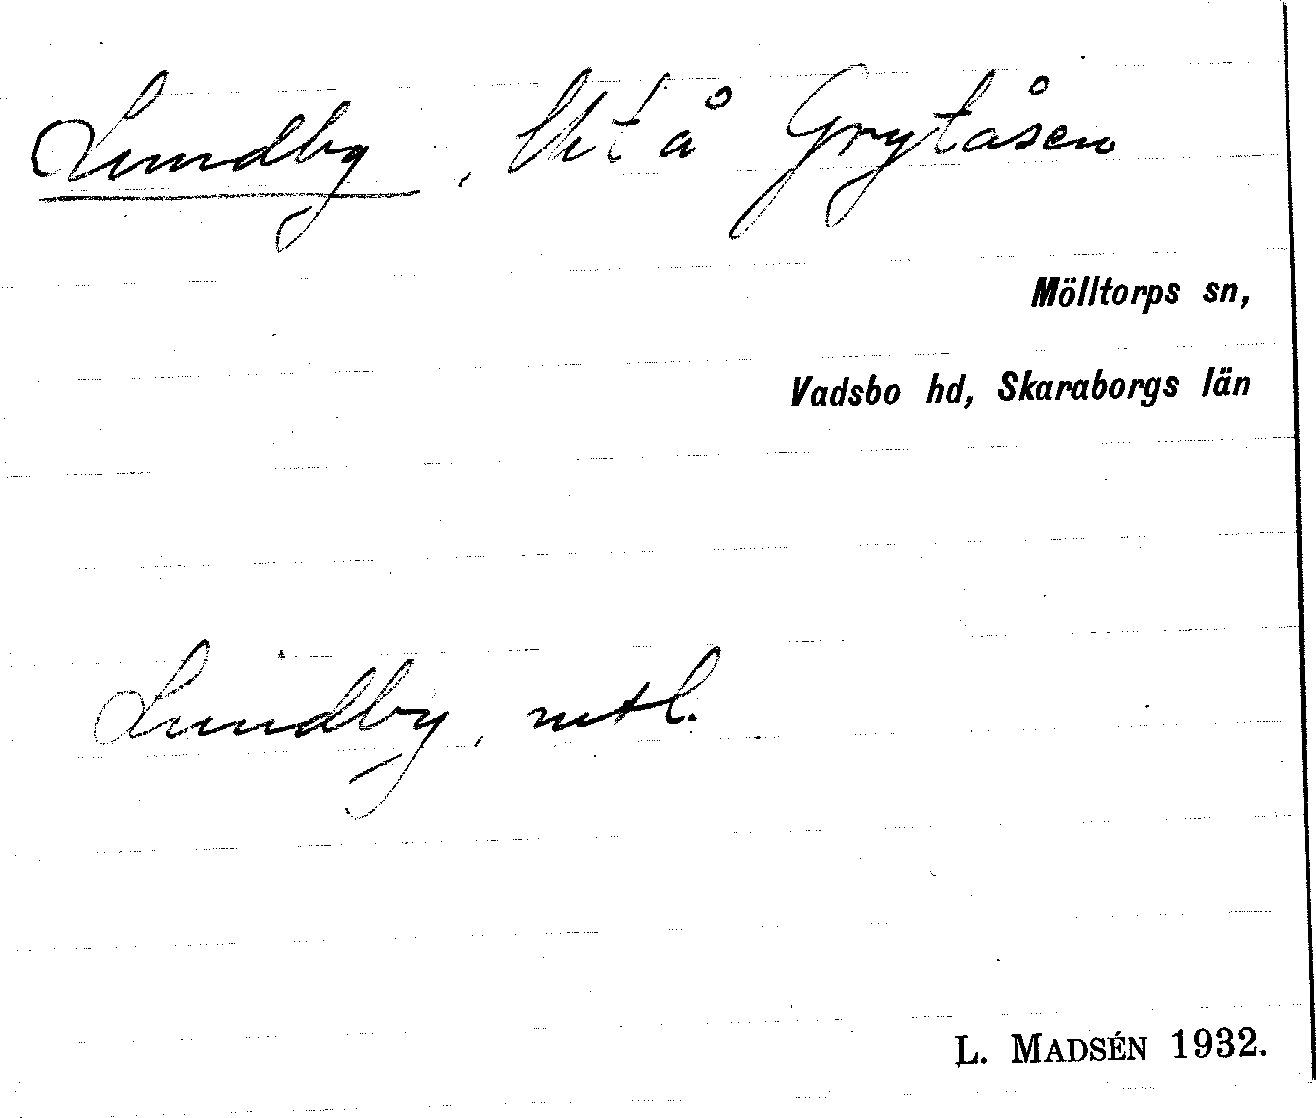 Lundby, lht å Grytåsen
Mölltorps sn,
Vadsbo hd, Skaraborgs län
Lundby, mtl.
L. MADSÉN 1932.